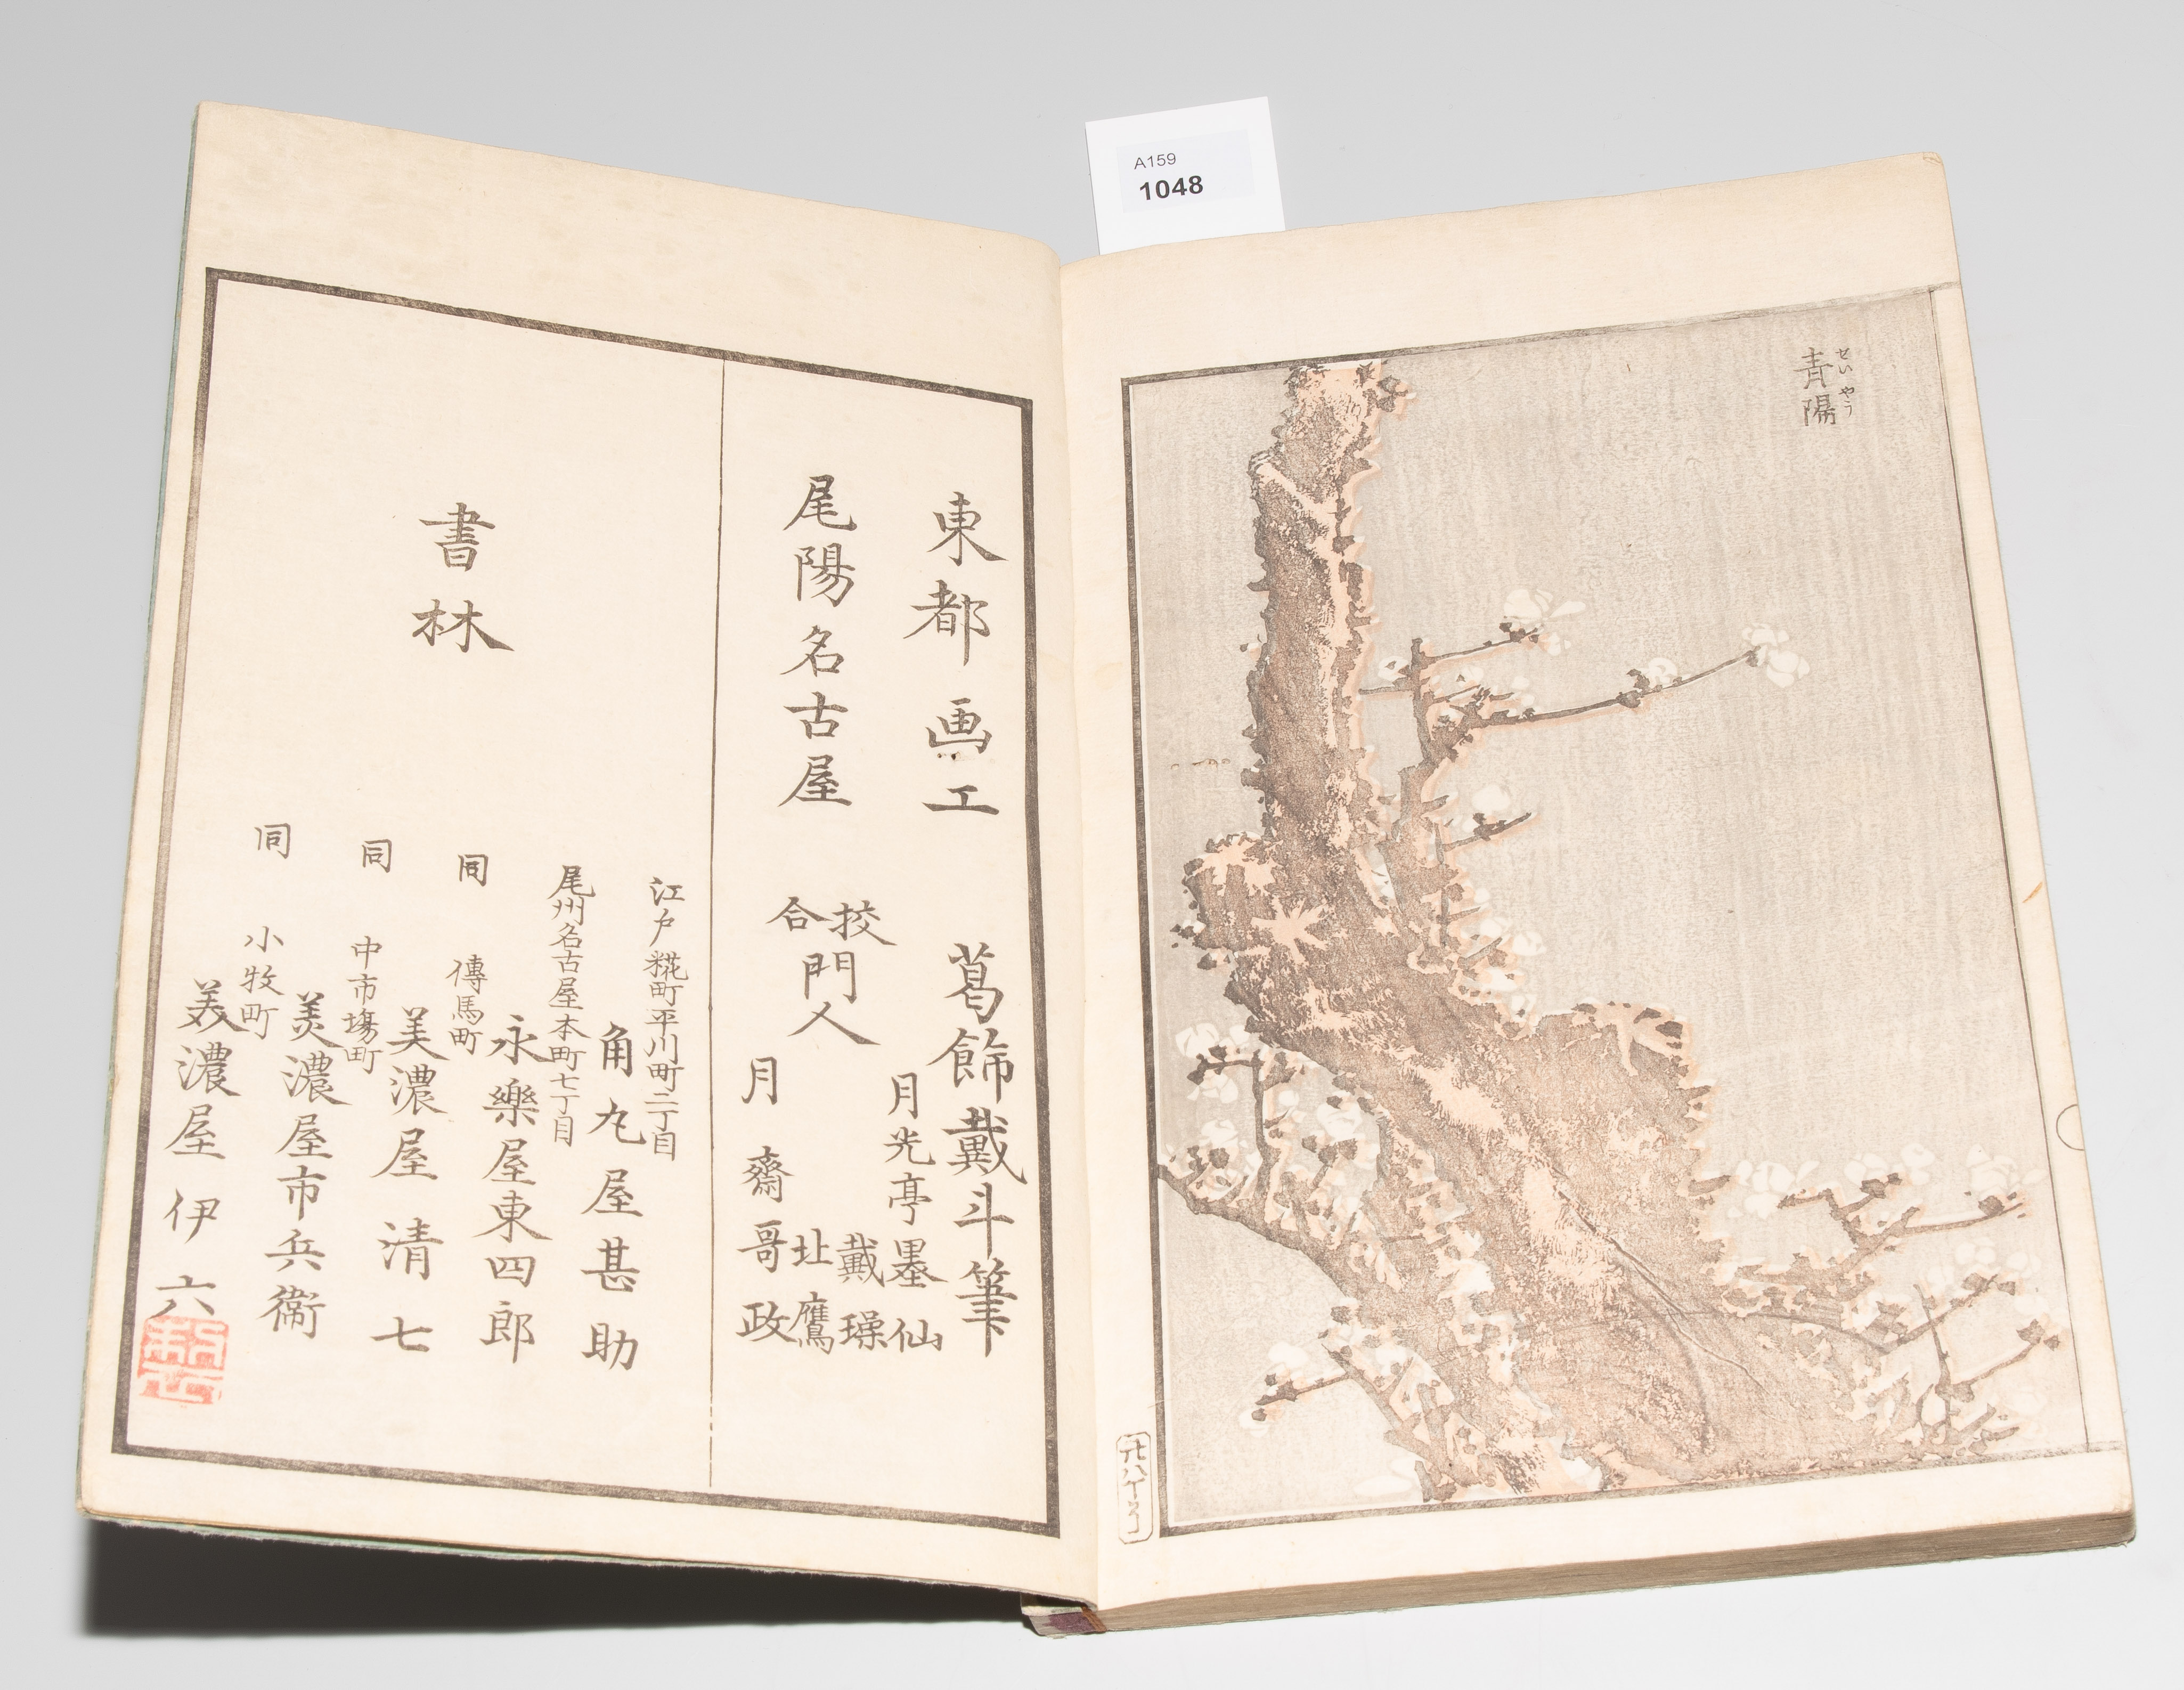 A159
1048
青陽
せいやう
東都画工
葛飾戴斗筆
尾陽名古屋
校合門人
月光亭墨仙
戴璪
北鷹
月齋哥政
書林
江戸糀町平川町二丁目
角丸屋甚助
尾州名古屋本町七丁目
永樂屋東四郎
同 傳馬町
美濃屋清七
同 中市場町
美濃屋市兵衞
同 小牧町
美濃屋伊六